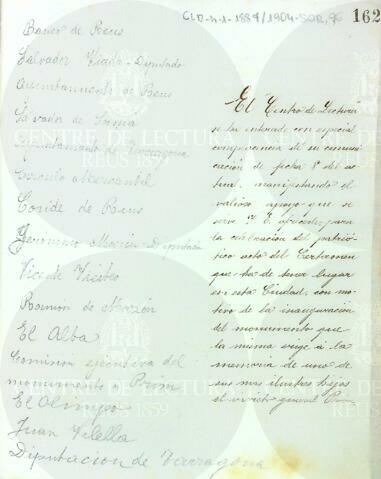 CLD-4-1-1887/1904-SOR,96
162
Banco de Reus
Salvador - Diputado
Ayuntamiento de Reus
Salvador de
Ayuntamiento de Tarragona
Circulo Mercantil
de Reus
Geronimo - Diputación
Ramon de
El Alba
Comision ejecutiva del
monumento Prim
El Olimpo
Juan Vilella
Diputacion de Tarragona
El Centro de Lectura
se ha enterado con especial
complacencia de su comuni-
cación de fecha 8 del ac-
tual, manifestando el
valioso apoyo que se
sirve V. E. ofrecer para
la celebracion del patrió-
tico acto del Certamen
que ha de tener lugar
en esta Ciudad, con mo-
tivo de la inauguración
del monumento que
la misma erige á la
memoria de uno de
sus mas ilustres hijos
el invicto general Prim
CENTRE DE LECTURA
REUS 1859